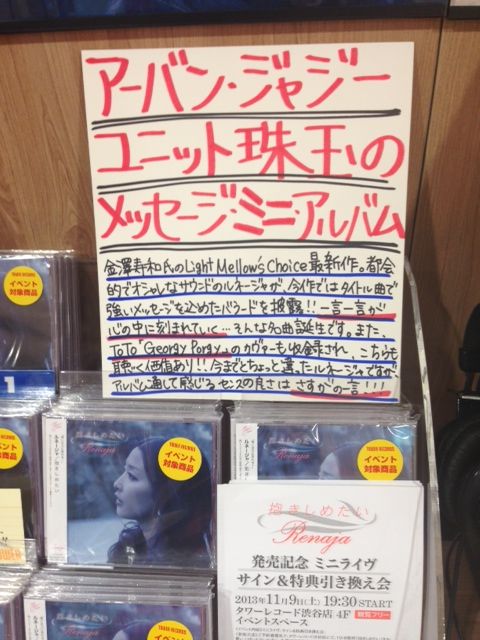 アーバン・ジャジー
ユニット珠玉の
メッセージ・ミニ・アルバム
金澤寿和氏のLight Mellow's Choice最新作。都会
的でオシャレなサウンドのルネージャが、今作ではタイトル曲で
強いメッセージを込めたバラードを披露!!一言一言が
心の中に刻まれていく…そんな名曲誕生です。また、
ToTo「Georgy Porgy」のカヴァーも収録され、こちらも
聴く価値あり!!今までとちょっと違ったルネージャですが
アルバム通して感じるセンスの良さはさすがの一言!!!
TOWER RECORDS
イベント
対象商品
1
抱きしめたい
Renaja
TOWER RECORDS
イベント
対象商品
TOWER RECORDS
イベント
対象商品
抱きしめたい
Renaja
発売記念 ミニライヴ
サイン&特典引き換え会
2013年11月9日(土) 19:30 START
タワーレコード渋谷店 4F 観覧フリー
イベントスペース